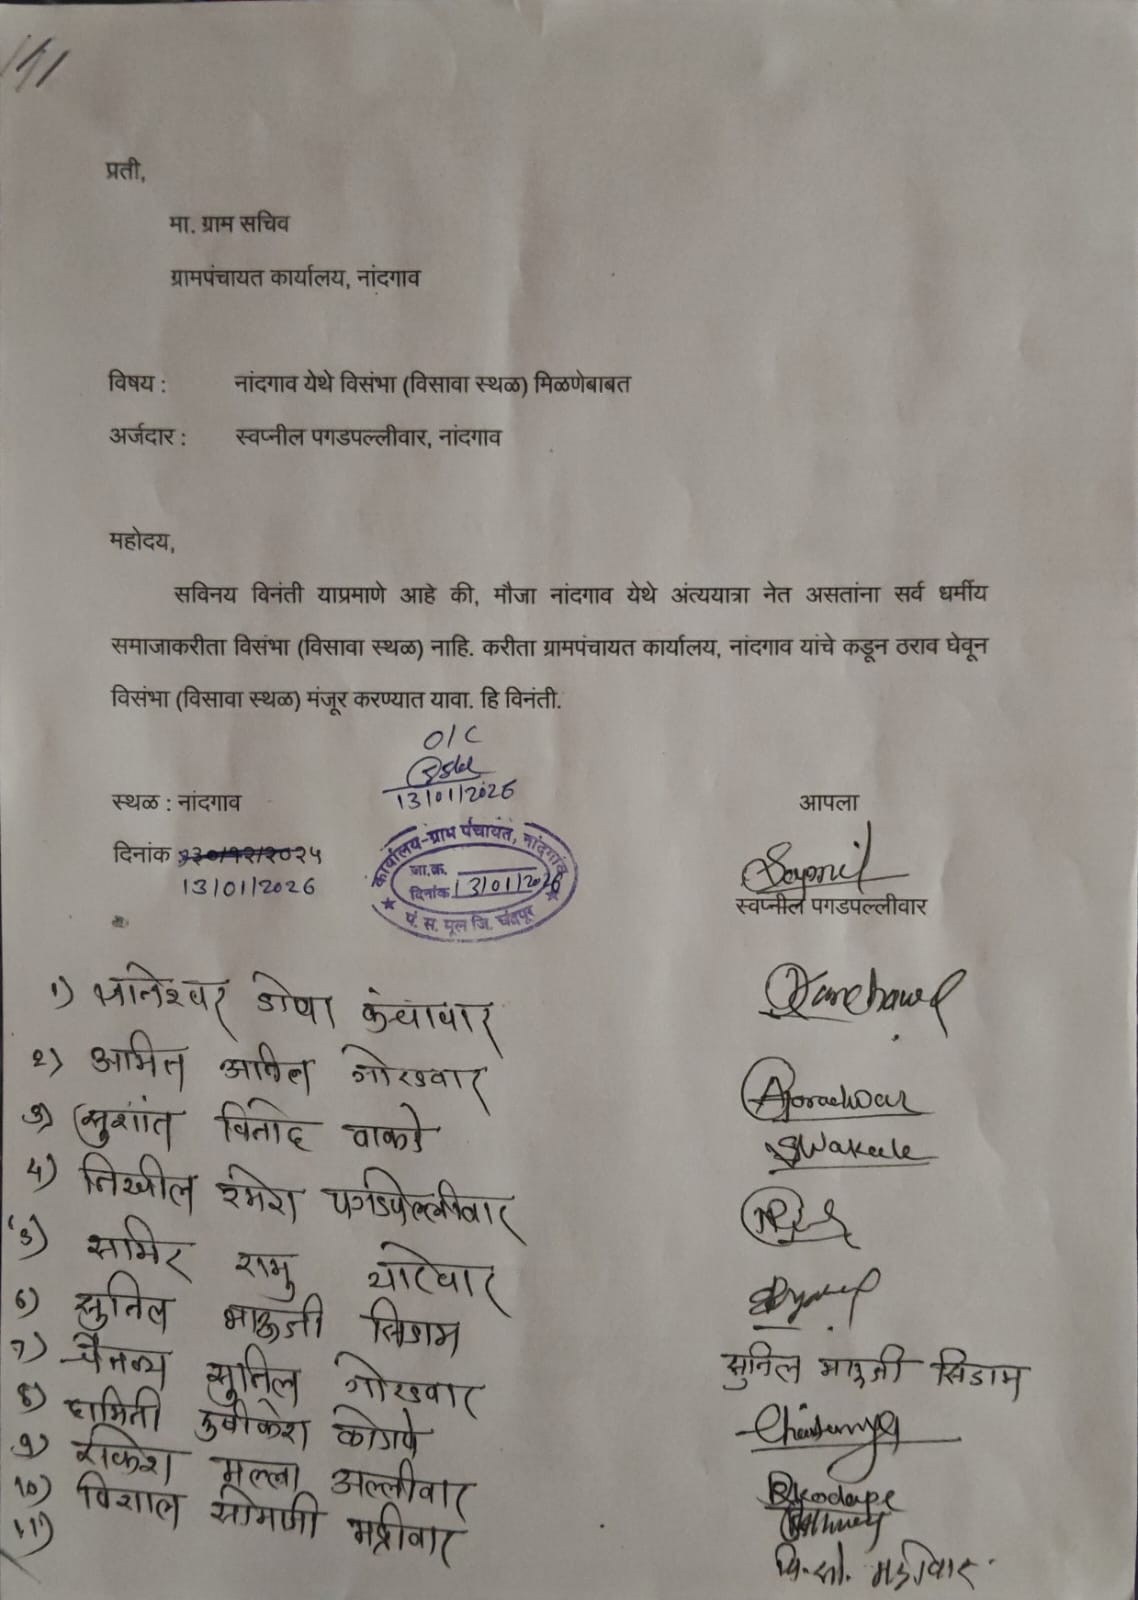 प्रती,
मा. ग्राम सचिव
ग्रामपंचायत कार्यालय, नांदगाव
विषय : नांदगाव येथे विसंभा (विसावा स्थळ) मिळणेबाबत
अर्जदार : स्वप्नील पगडपल्लीवार, नांदगाव
महोदय,
सविनय विनंती याप्रमाणे आहे की, मौजा नांदगाव येथे अंत्ययात्रा नेत असतांना सर्व धर्मीय
समाजाकरीता विसंभा (विसावा स्थळ) नाहि. करीता ग्रामपंचायत कार्यालय, नांदगाव यांचे कडून ठराव घेवून
विसंभा (विसावा स्थळ) मंजूर करण्यात यावा. हि विनंती.
O/C
13/01/2026
स्थळ : नांदगाव
आपला
दिनांक
13/01/2026
कार्यालय-ग्राम पंचायत, नांदगाव
जा.क्र.
दिनांक 13/01/2026
पं. स. मूल जि. चंद्रपूर
स्वप्नील पगडपल्लीवार
1)
2) अमित अनिल गोरडवार
3) सुशांत विनोद वाकडे
SWakade
4) निखील रमेश पगडपल्लीवार
5) समिर राजु
6) सुनिल भाऊजी सिडाम
सुनिल भाऊजी सिडाम
7) चैतन्य सुनिल गोरडवार
8)
9) राकेश मल्ला अल्लीवार
10) विशाल सोमाजी
11)
वि. सो.